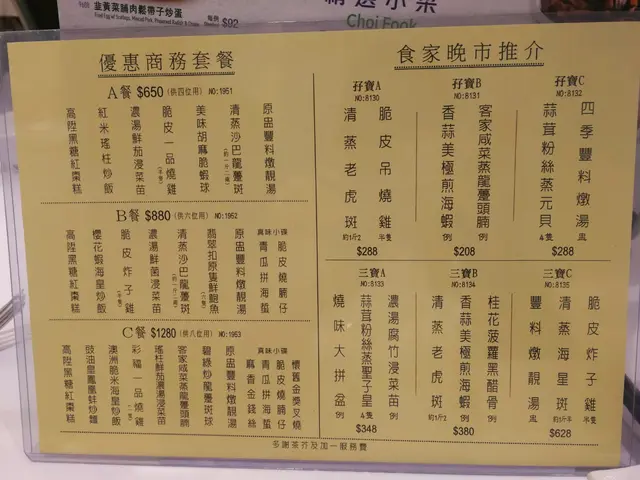 韭黃菜脯肉鬆帶子炒蛋
每例 $92
精選小菜
Choi Fook
優惠商務套餐
A餐 $650 (供四位用) NO:1951
原盅豐料燉靚湯
清蒸沙巴龍躉斑
美味胡麻脆蝦球
脆皮一品燒雞(半隻)
濃湯鮮茄浸菜苗
紅米瑤柱炒飯
高陞黑糖紅棗糕
B餐 $880 (供六位用) NO:1952
異味小碟
脆皮燒腩仔
青瓜拼海蜇
原盅豐料燉靚湯
翡翠扣原隻鮮鮑魚(六隻)
清蒸沙巴龍躉斑
濃湯鮮菌浸菜苗
脆皮炸子雞(半隻)
櫻花蝦海皇炒飯
高陞黑糖紅棗糕
C餐 $1280 (供八位用) NO:1953
懷舊金獎叉燒
異味小碟
脆皮燒腩仔
青瓜拼海蜇
麻香金錢絲
原盅豐料燉靚湯
碧綠炒龍躉斑球
客家咸菜蒸龍躉頭腩
瑤柱鮮茄濃湯浸菜苗
彩福一品燒雞
澳洲脆米海皇炒飯
豉油皇鳳凰蚌炒麵
高陞黑糖紅棗糕
食家晚市推介
孖寶A
NO:8130
脆皮吊燒雞 半隻
清蒸老虎斑 約1斤2
$288
孖寶B
NO:8131
客家咸菜蒸龍躉頭腩 例
香蒜美極煎海蝦 例
$208
孖寶C
NO:8132
四季豐料燉湯 窩
蒜茸粉絲蒸元貝 4隻
$288
三寶A
NO:8133
濃湯腐竹浸菜苗 例
蒜茸粉絲蒸聖子皇 4隻
燒味大拼盆 例
$348
三寶B
NO:8134
桂花菠蘿黑醋骨 例
香蒜美極煎海蝦 例
清蒸老虎斑 約1斤2
$380
三寶C
NO:8135
脆皮炸子雞 半隻
清蒸海星斑 約1斤半
豐料燉靚湯 窩
$628
多謝茶芥及加一服務費